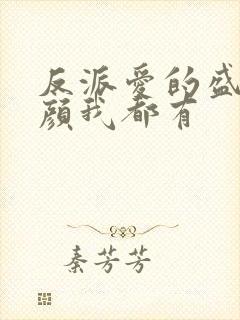 反派爱的盛
颜我都有
秦芳芳